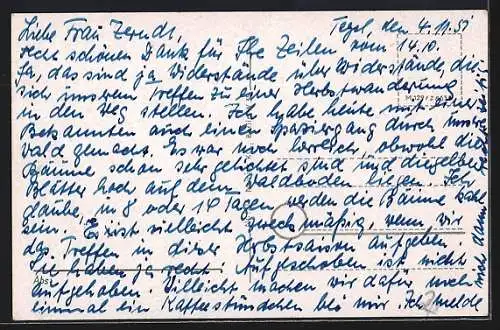 Tegel, den 4.11.51
Liebe Frau Zerndt,
recht schönen Dank für Ihre Zeilen vom 14.10.
Ja, das sind ja Widerstände über Widerstände, die
sich unserem Treffen zu einer Herbstwanderung
in den Weg stellen. Ich habe heute mit einer
Bekannten auch einen Spaziergang durch unseren
Wald gemacht. Es war noch herrlich, obwohl die
Bäume schon sehr gelichtet sind und die gelben
Blätter hoch auf dem Waldboden liegen. Ich
glaube, in 8 oder 14 Tagen werden die Bäume kahl
sein. Es ist vielleicht zweckmäßig, wenn wir
das Treffen in dieser Herbstsaison aufgeben.
Sie haben ja recht: Aufgeschoben ist nicht
aufgehoben. Vielleicht machen wir dafür noch
einmal ein Kaffeestündchen bei mir. Ich melde
mich dann
Abs.